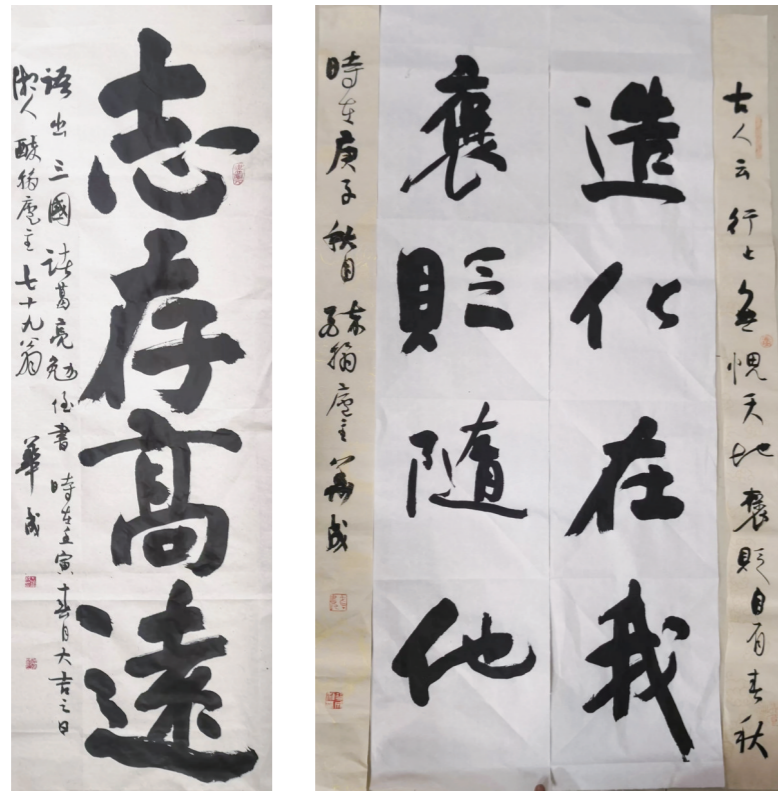 志存高遠
語出三國諸葛亮勉侄書 時在壬寅春月大吉之日
湘人 翁廬主 七十九翁 華成
古人云 行止無愧天地 褒貶自有春秋
造化在我
褒貶隨他
時在庚子秋月 翁廬主 華成